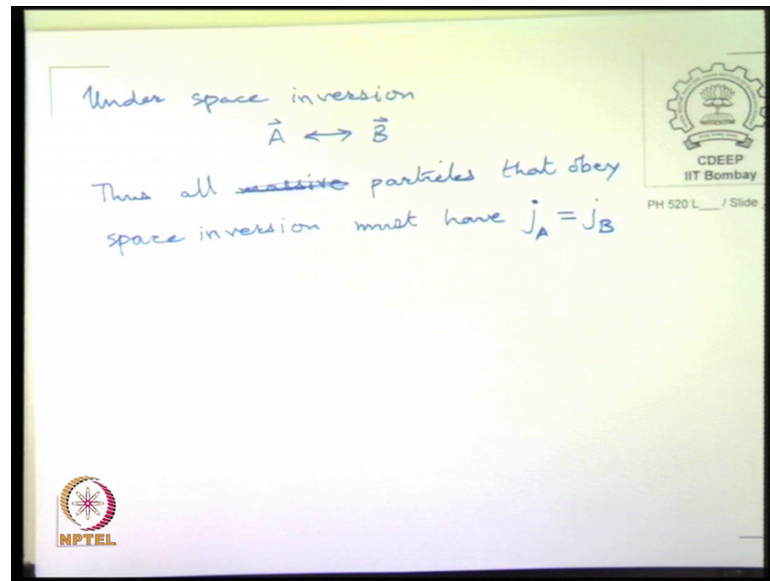 Under space inversion
A⃗ ↔ B⃗
Thus all ~~massive~~ particles that obey
space inversion must have j_A = j_B
CDEEP
IIT Bombay
PH 520 L___ / Slide
NPTEL